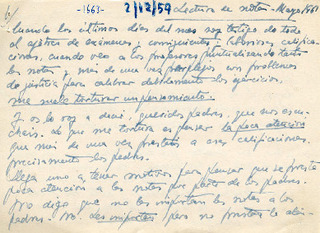 -1663- 2/12/59 Lectura de notas - Mayo/961
Cuando los últimos días del mes soy testigo de todo
el ajetreo de exámenes, correcciones, calificaci-
ciones, cuando veo a los profesores
las notas, más de una vez con problemas
de justicia para calibrar debidamente los ejercicios.
me suele torturar un pensamiento.
Y os lo voy a decir, queridos padres, que nos escu-
cháis. Lo que me tortura es pensar la poca atención
que más de una vez prestáis a esas calificaciones,
precisamente los padres.
Llega uno a tener motivos para pensar que se presta
poca atención a las notas por parte de los padres.
No digo que no les importan las notas a los
padres. No. Les importan, pero no prestan la de-